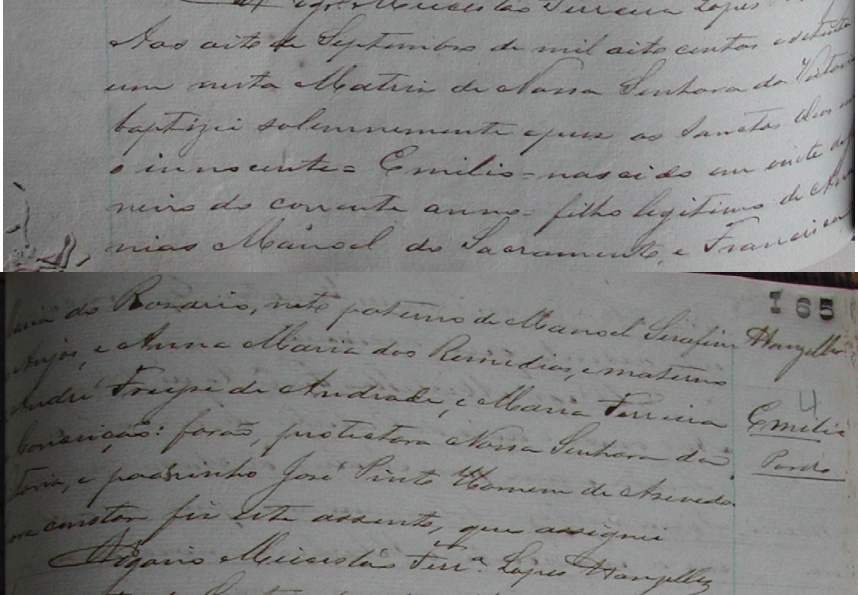 Vigr.º Micceslás Ferreira Lopes
Aos oito de Septembro de mil oito centos e setenta
um nesta Matriz de Nossa Senhora da Victoria
baptizei solemnemente e puz os Sanctos oleos
o innocente = Emilio = nascido em vinte de
neiro do corrente anno = filho legitimo de
nias Manoel do Sacramento, e Francisca
165
Maria do Rosario, neto paterno de Manoel Serafim
Wanzeller
Anjos, e Anna Maria dos Remedios, e materno
André Freyre de Andrade, e Maria Ferreira
4
Emilio
Conceição: forão, protectora Nossa Senhora da
Pardo
toria, e padrinho José Pinto Homem de Azevedo
ra constar fiz este assento, que assignei
Vigario Micceslás Ferr.ª Lopes Wanzeller